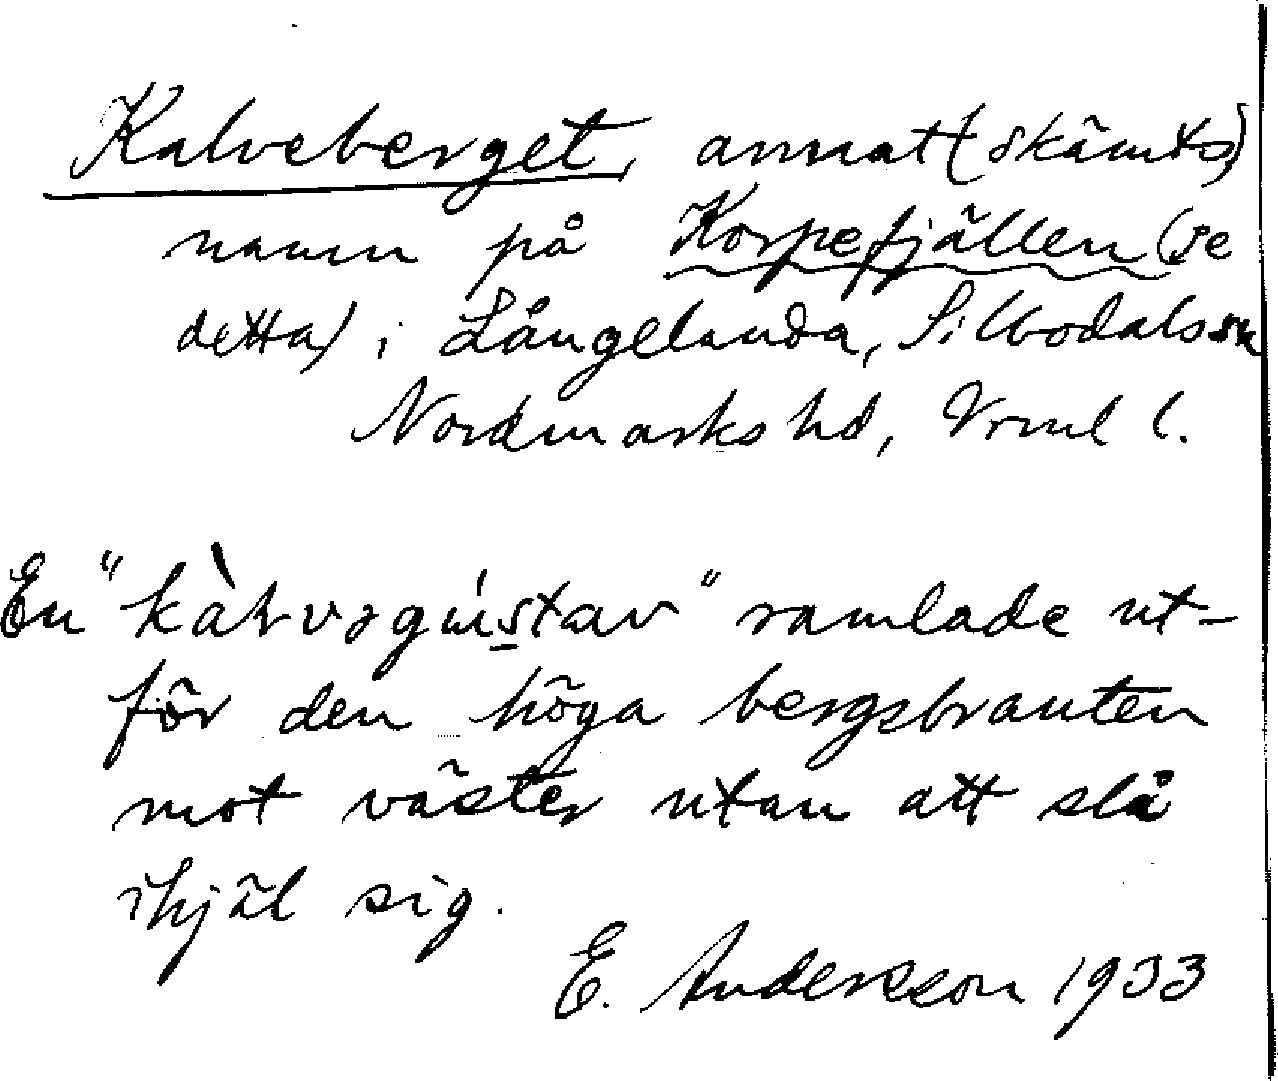 Kalveberget, annat (skämts)
namn på Korpefjällen (se
detta) i Långelanda, Silbodals sn
Nordmarks hd, Vrml l.
En "kàɫvəgústav" ramlade ut-
för den höga bergsbranten
mot väster utan att slå
ihjäl sig.
E. Andersson 1933